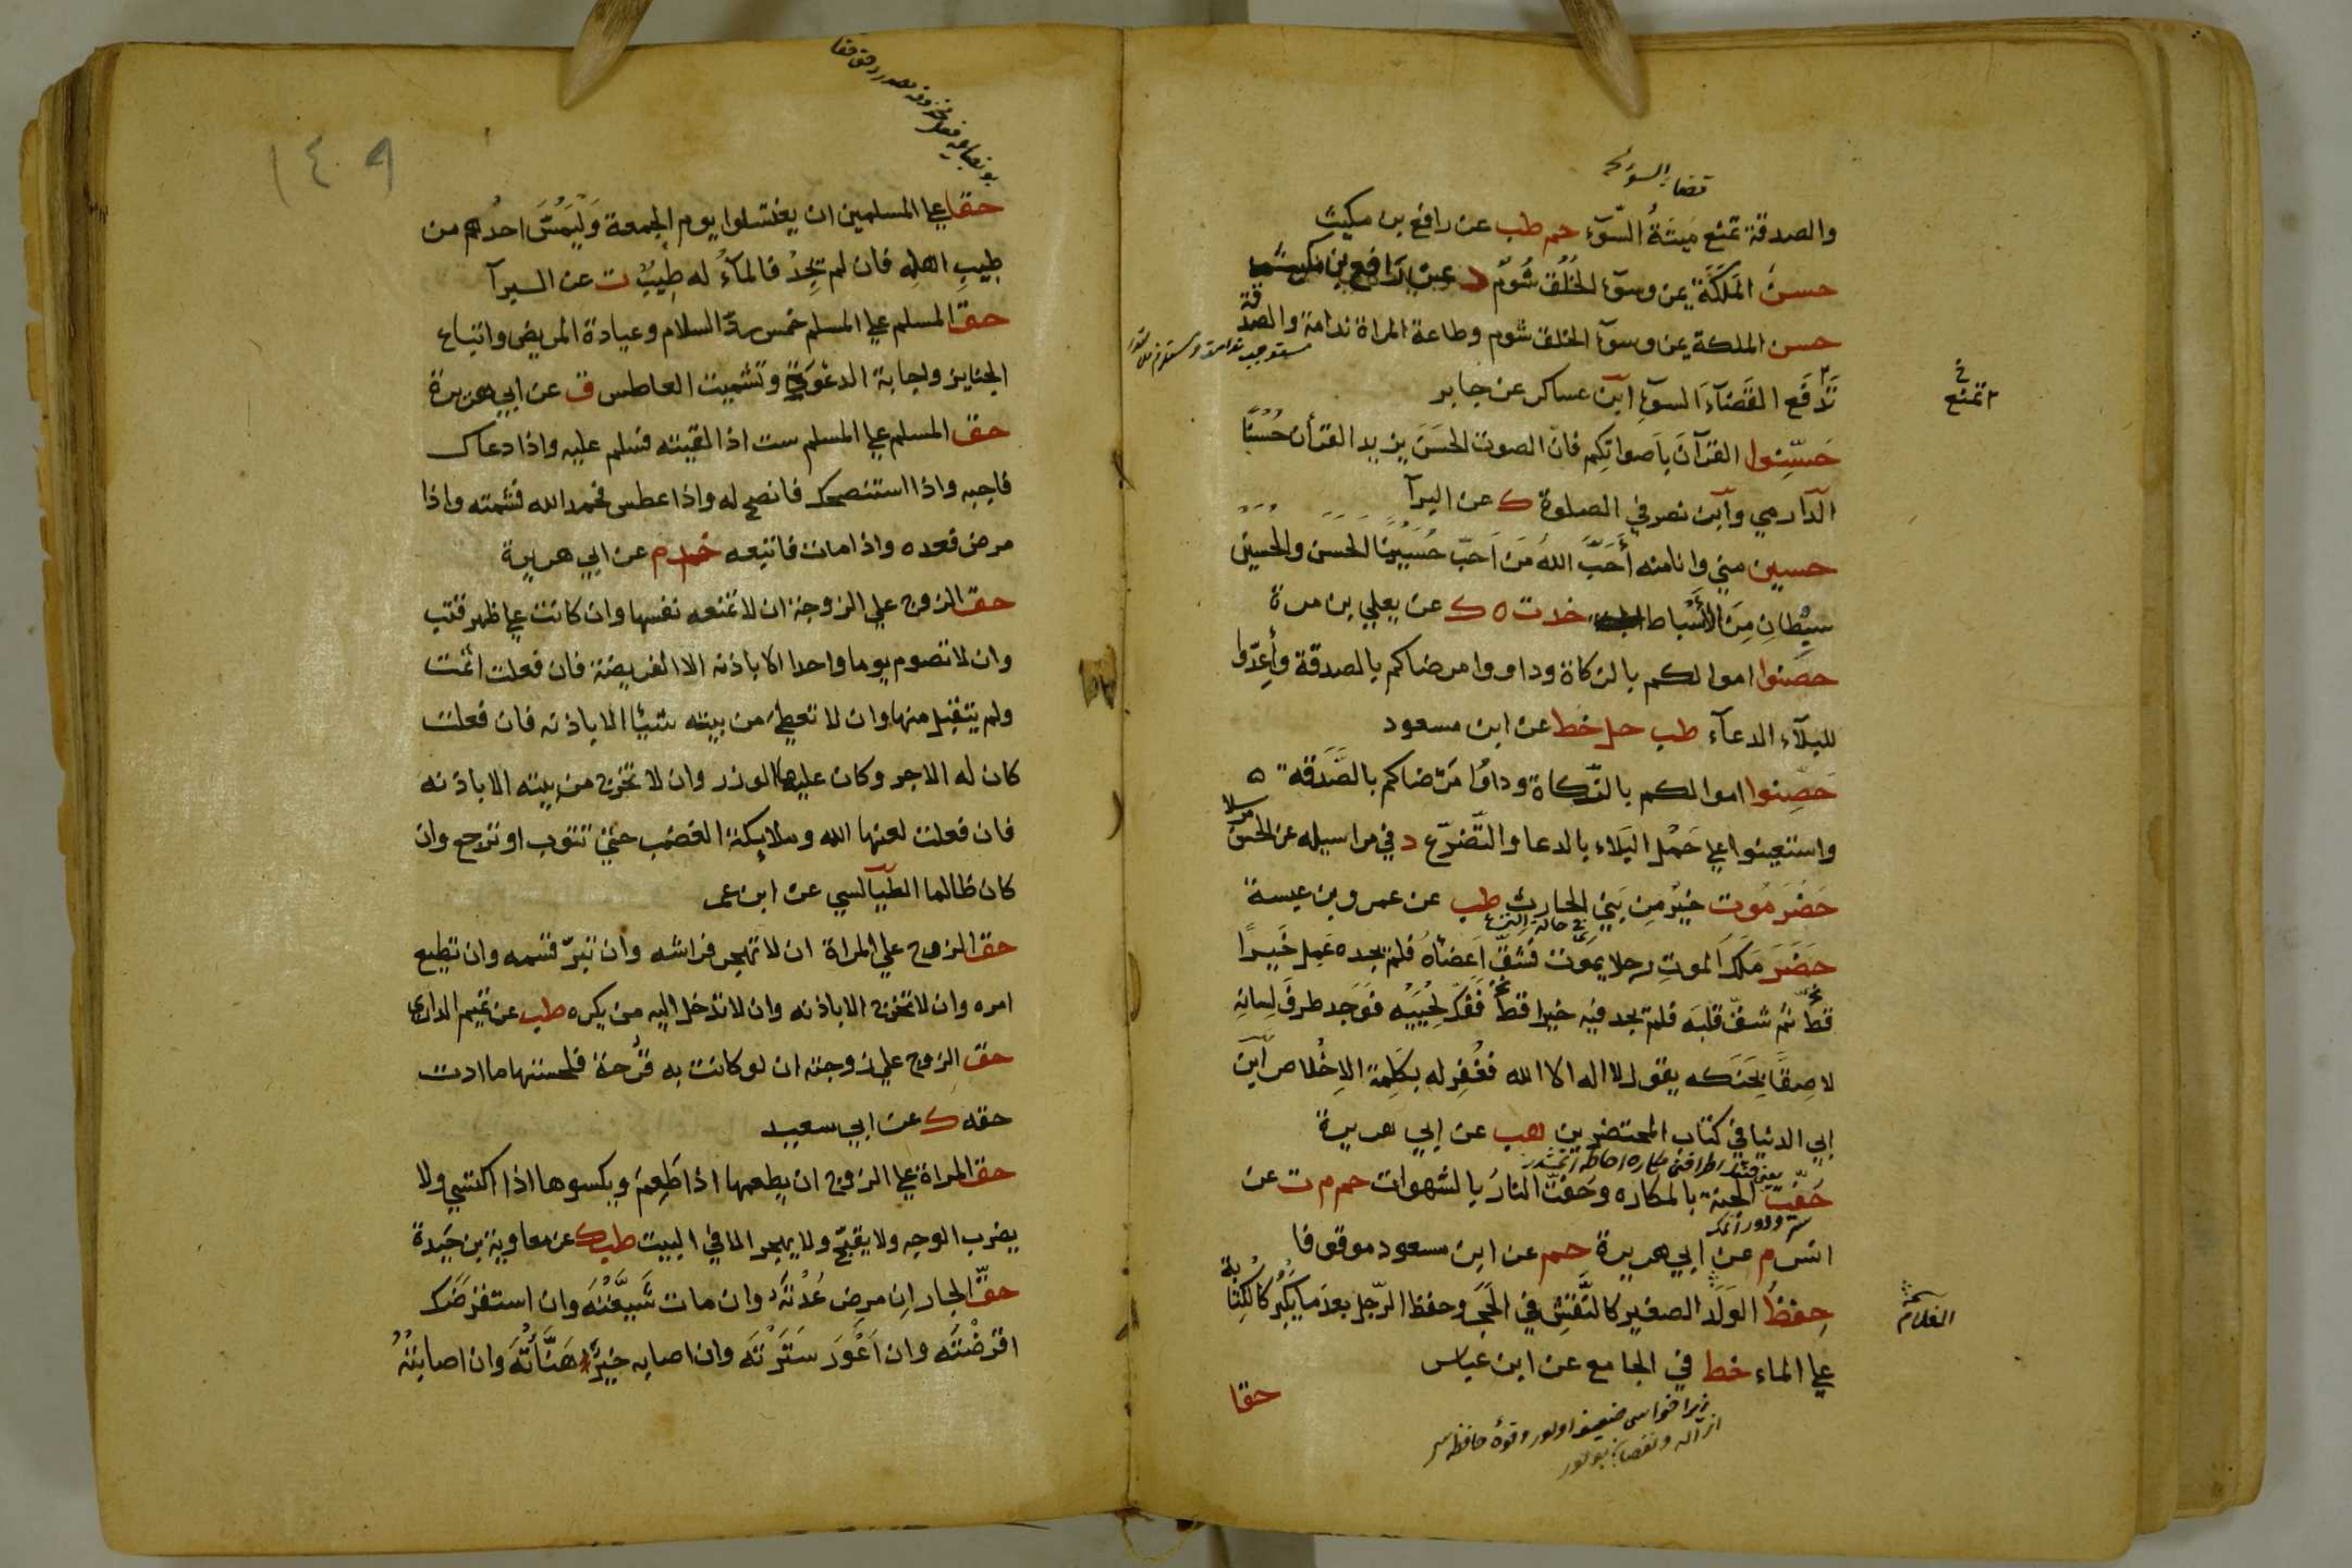 قضاء السوء
والصدقة تمنع مَيتَةُ السّوٓء حم طب عن رافع بن مكيث
حسنُ المَلَكَة يمن وسوٓء الخُلُق شُوم د عن رافع بن مكيث
حسن الملكة يمن وسوٓء الخلق شوم وطاعة المراة ندامة والصدقة
تَدفَع القَضآءَ السوٓء ابن عساكر عن جابر
تمنع
حَسّنِوا القرآنَ بأصواتِكم فانّ الصوت الحَسَنَ يزيد القرأن حُسْنًا
الدّارمي وابن نصر في الصلوة ك عن البرآ
حسين مني وانا منه أَحَبَّ اللهُ مَن اَحبّ حُسَيْنًا الحَسَن والحُسَيْن
سِبْطانِ مِنَ الأَسْباط خد ت ه ك عن يعلي بن مرة
حصنوا اموالكم بالزكاة وداووا مرضاكم بالصدقة وأعِدّوا
للبلآء الدعآء طب حل خط عن ابن مسعود
حَصِّنوا اموالكم بالزّكاة وداوُا مَرْضاكم بالصَّدقة
واستعينوا علي حَمْل البَلاء بالدعا والتّضرّع د في مراسيله عن الحسن مرسلا
حَضْرَمُوت خيرٌ مِن بَنِي الحارث طب عن عمرو بن عبسة
في حالة النزع
حَضَرَ مَلَكُ الموتِ رجلا يموت فشَقّ اَعضآهُ فلم يجده عَمِل خَيرًا
قطّ ثم شقّ قلبَه فلم يجد فيه خيرا قطّ فَفَكّ لِحْيَيْه فوَجد طرفَ لِسانِه
لاصِقًا بحَنَكه يقول لا اله الا الله فغُفِر له بكَلِمة الاِخْلاص ابن
ابي الدنيا في كتاب المحتضرين هب عن ابي هريرة
حُفّت الجنة بالمكاره وحُفّت النارُ بالشهوات حم م ت عن
انس م عن ابي هريرة حم عن ابن مسعود موقوفا
حِفظُ الوَلَد الصغير كالنَّقْش في الحَجَر وحفظ الرّجل بعدَ ما يَكبُر كالكِتابة
الغلام
علي الماء خط في الجامع عن ابن عباس
حقا
١٤٠٩
حقا علي المسلمين ان يغتسلوا يوم الجمعة وَلْيَمُسَّ احدُهم من
طِيبِ اهلِه فان لم يَجِدْ فالمآءُ له طِيبٌ ت عن البرآ
حق المسلم علي المسلم خمس ردّ السلام وعيادة المريض واتباع
الجنايز واجابة الدعْوَة وتشميت العاطس ق عن ابي هريرة
حق المسلم علي المسلم ست اذا لقيته فسلم عليه واذا دعاك
فاجبه واذا استنصحك فانصح له واذا عطس فحمد الله فشمته واذا
مرض فعده واذا مات فاتبعه خد م عن ابي هريرة
حق الزوج علي الزوجة ان لا تمنعه نفسها وان كانت علي ظهر قتب
وان لا تصوم يوما واحدا الا باذنه الا الفريضة فان فعلت اثمت
ولم يتقبل منها وان لا تعطي من بيته شيئا الا باذنه فان فعلت
كان له الاجر وكان عليها الوزر وان لا تخرج من بيته الا باذنه
فان فعلت لعنها الله وملائكة الغضب حتي تتوب او ترجع وان
كان ظالما الطيالسي عن ابن عمر
حق الزوج علي المراة ان لا تهجر فراشه وان تبرّ قسمه وان تطيع
امره وان لا تخرج الا باذنه وان لا تدخل اليه من يكره طب عن تميم الداري
حق الزوج علي زوجته ان لو كانت به قُرحة فلحستها ما ادت
حقه ك عن ابي سعيد
حق المراة علي الزوج ان يطعمها اذا طَعِمَ ويكسوها اذا اكتسي ولا
يضرب الوجه ولا يقبّح ولا يهجر الا في البيت طب ك عن معاوية بن حَيدة
حقّ الجار اِن مرِض عُدْتَه وان مات شَيَّعْتَه وان استقرضَك
اقرَضْتَه وان اَعْوَرَ سَتَرْتَه وان اصابه خيرٌ هَنَّأْتَه وان اصابتْهُ